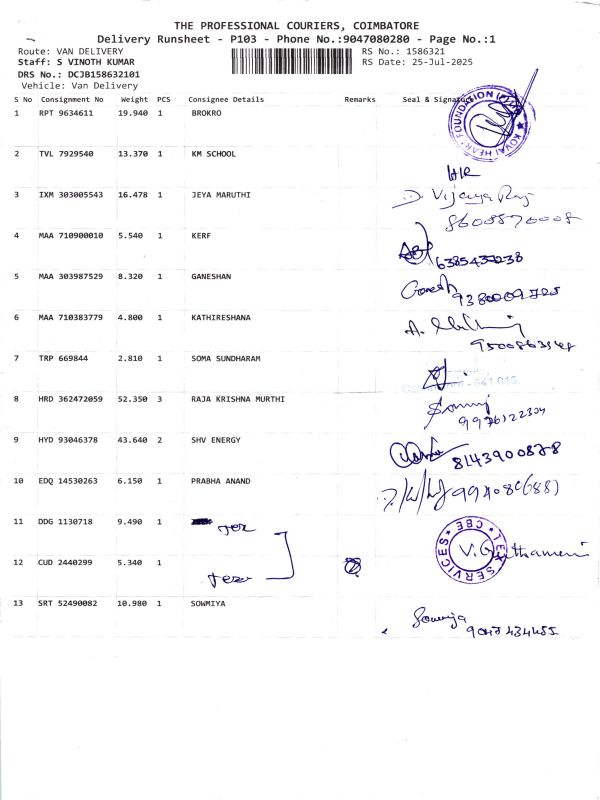 THE PROFESSIONAL COURIERS, COIMBATORE
Delivery Runsheet - P103 - Phone No.:9047080280 - Page No.:1
Route: VAN DELIVERY RS No.: 1586321
Staff: S VINOTH KUMAR RS Date: 25-Jul-2025
DRS No.: DCJB158632101
Vehicle: Van Delivery
S No Consignment No Weight PCS Consignee Details Remarks Seal & Signature
1 RPT 9634611 19.940 1 BROKRO
KOVAI HEART FOUNDATION
2 TVL 7929540 13.370 1 KM SCHOOL
3 IXM 303005543 16.478 1 JEYA MARUTHI
D. Vijaya Raj
4 MAA 710900010 5.540 1 KERF
5 MAA 303987529 8.320 1 GANESHAN
Ganesh
6 MAA 710383779 4.800 1 KATHIRESHANA
7 TRP 669844 2.810 1 SOMA SUNDHARAM
641 018
8 HRD 362472059 52.350 3 RAJA KRISHNA MURTHI
9976122304
9 HYD 93046378 43.640 2 SHV ENERGY
8143900878
10 EDQ 14530263 6.150 1 PRABHA ANAND
11 DDG 1130718 9.490 1
TEX SERVICES * CBE *
12 CUD 2440299 5.340 1
13 SRT 52490082 10.980 1 SOWMIYA
Sowmiya